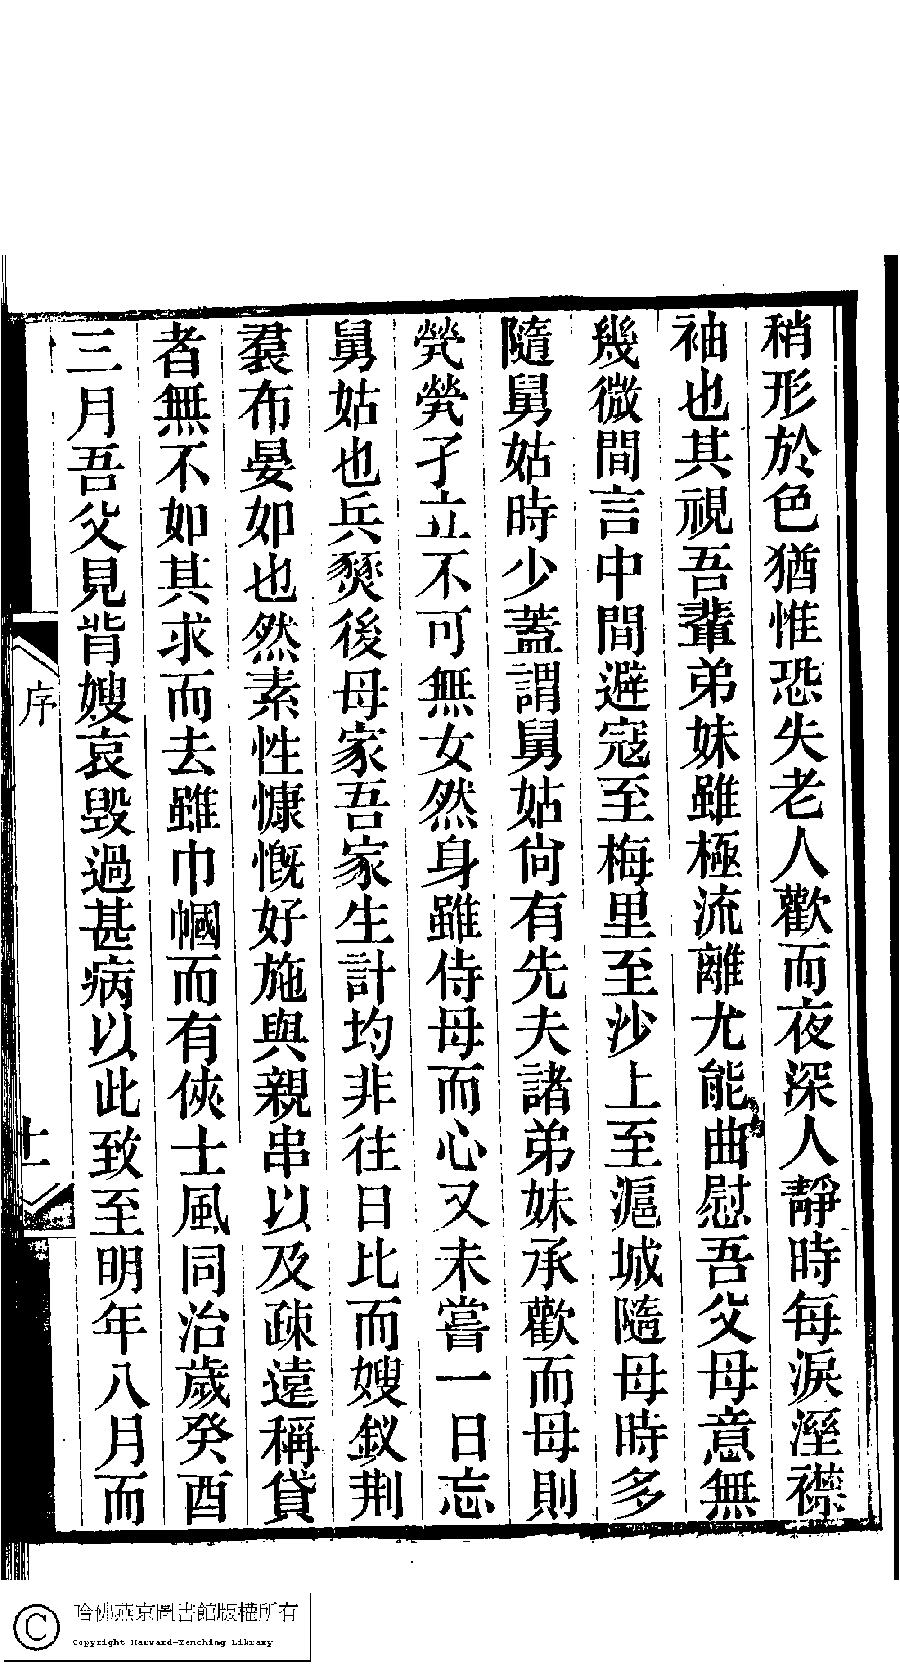 稍形於色猶惟恐失老人歡而夜深人靜時每淚溼襟
袖也其視吾輩弟妹雖極流離尤能曲慰吾父母意無
幾微間言中間避寇至梅里至沙上至滬城隨母時多
隨舅姑時少蓋謂舅姑尙有先夫諸弟妹承歡而母則
煢煢孑立不可無女然身雖侍母而心又未嘗一日忘
舅姑也兵燹後母家吾家生計均非往日比而嫂釵荆
裠布晏如也然素性慷慨好施與親串以及疎遠稱貸
者無不如其求而去雖巾幗而有俠士風同治歲癸酉
三月吾父見背嫂哀毀過甚病以此致至明年八月而
序
哈佛燕京圖書館版權所有
Copyright Harvard-Yenching Library